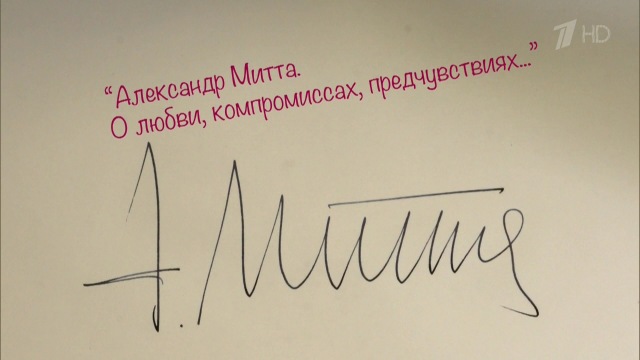 1 HD
“Александр Митта.
О любви, компромиссах, предчувствиях...”
А. Митта